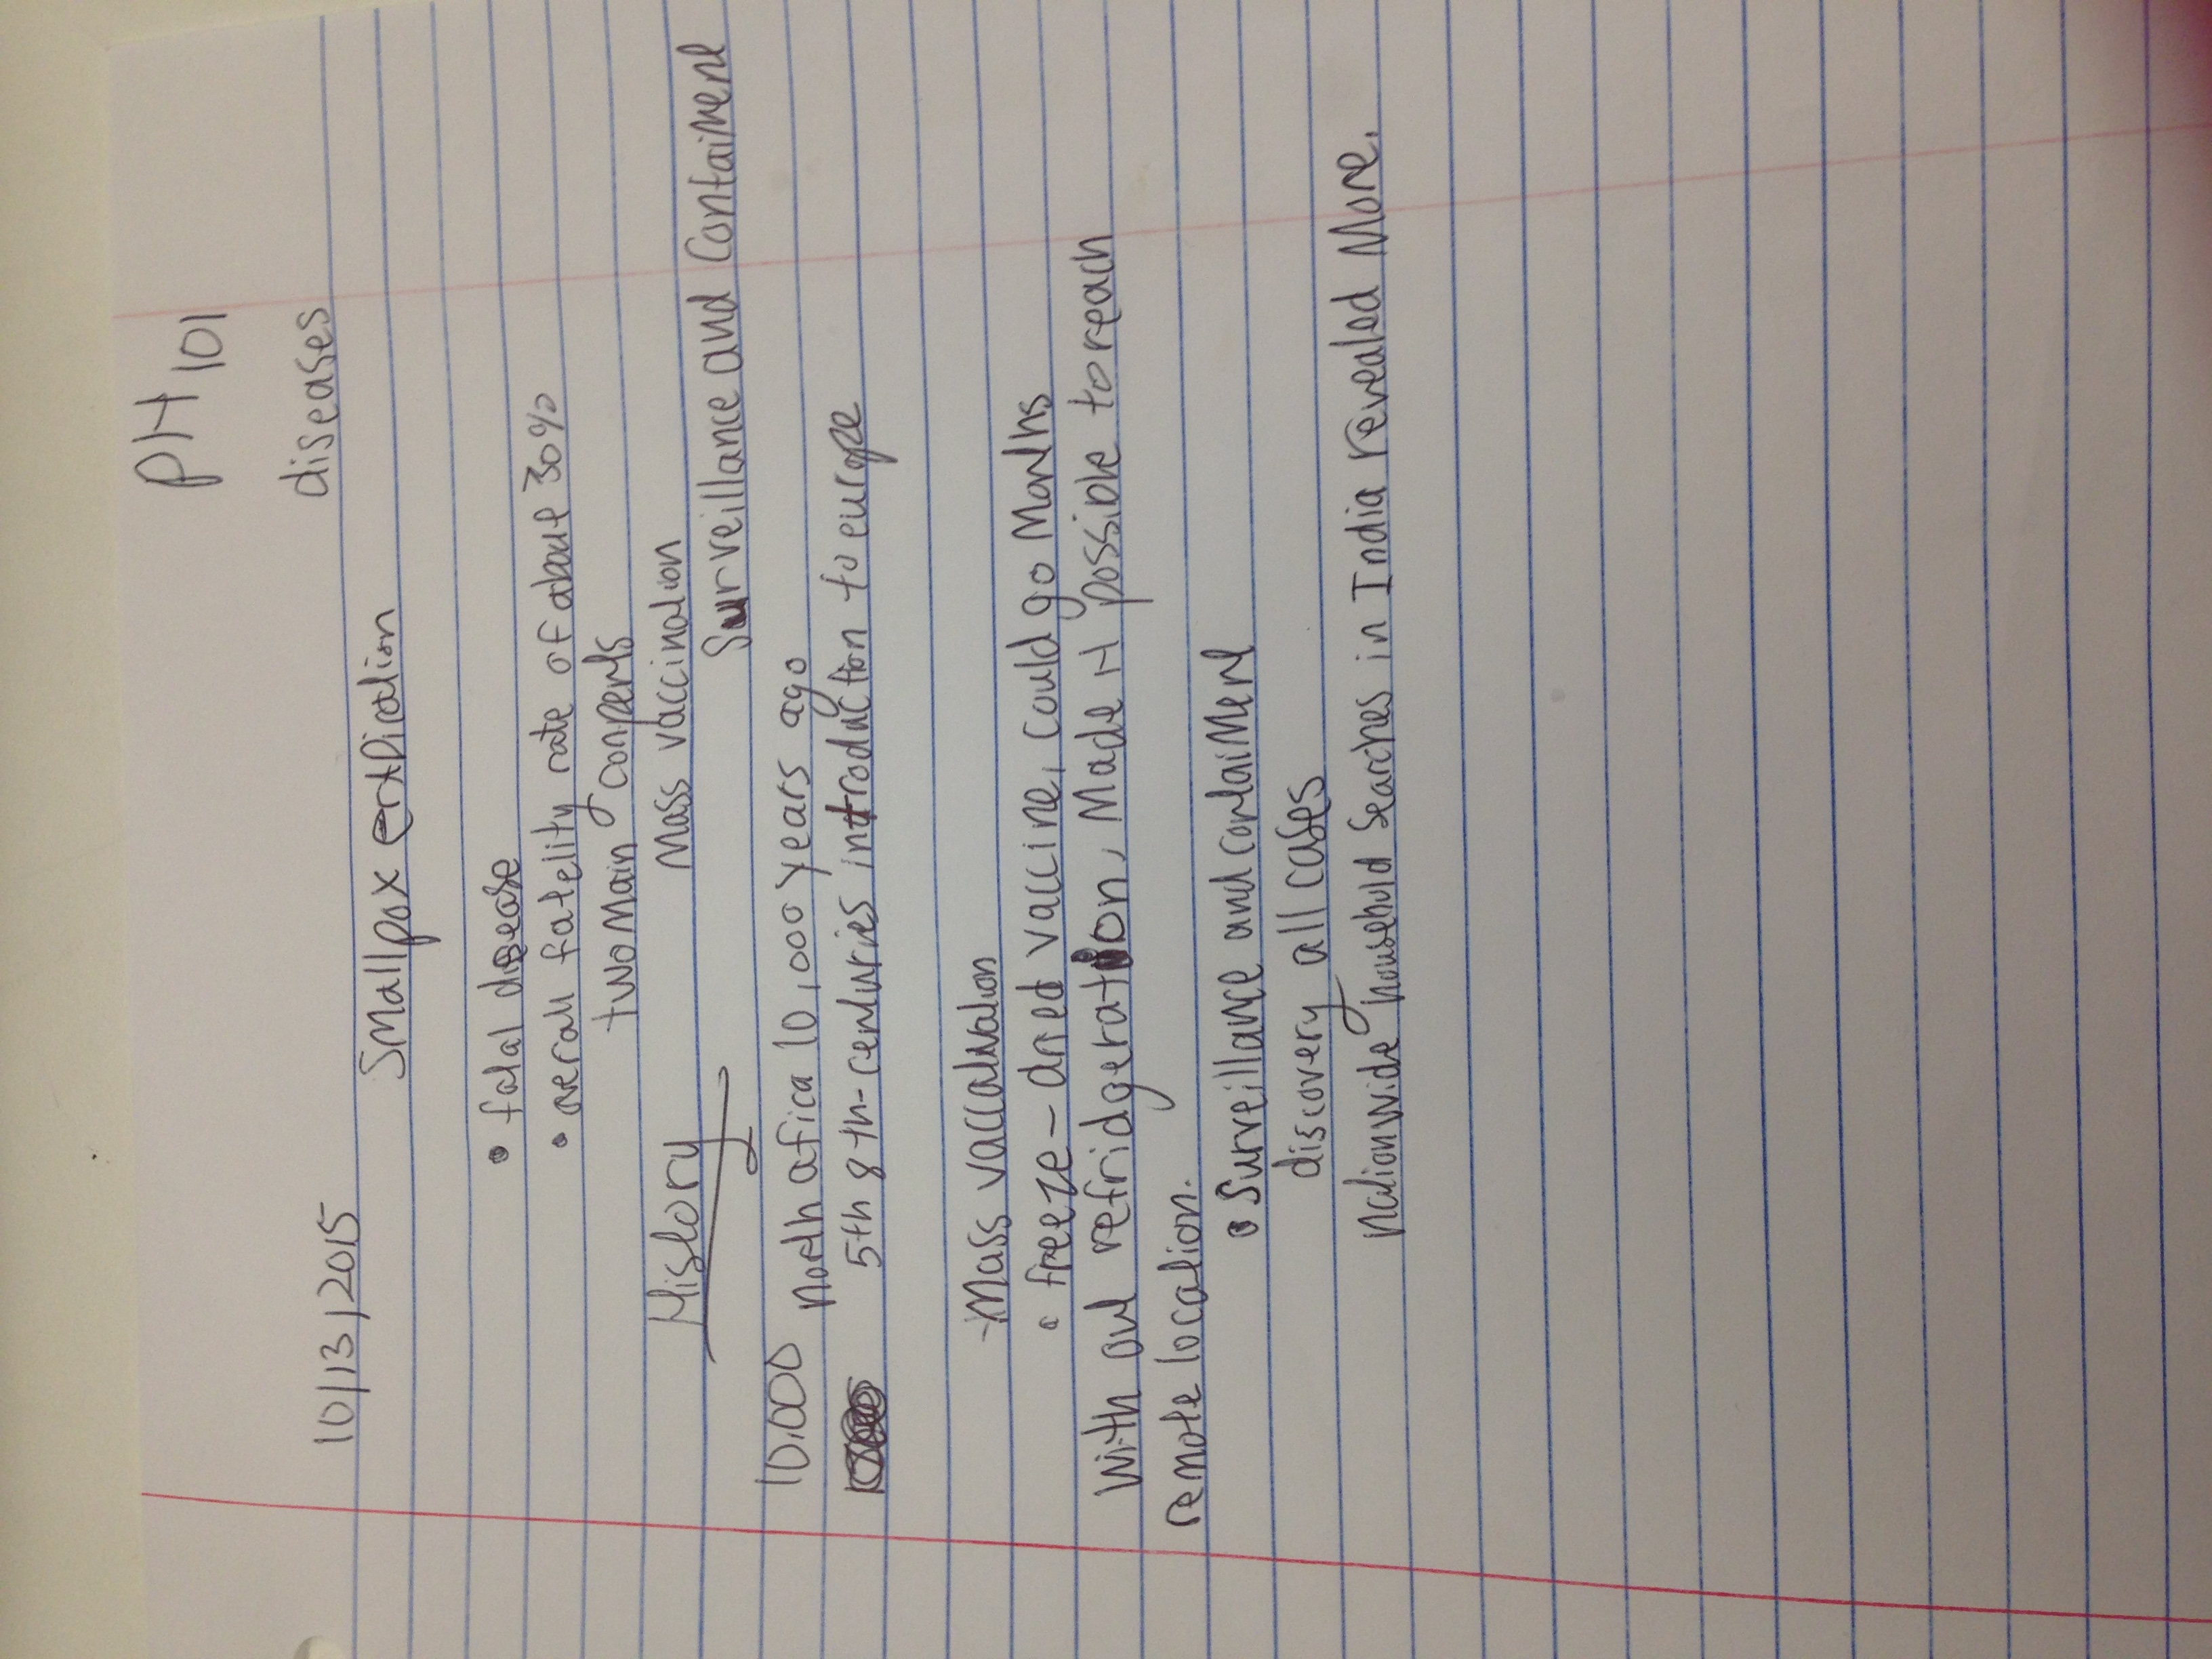 PH 101
10/13/2015 diseases
Smallpox
• fatal disease
• overall fatelity rate of about 30%
two main conpents
Mass vaccination
History Surveillance and Containment
10,000 North africa 10,000 years ago
5th 8th-centuries introduction to europe
Mass
• freeze-dried vaccine, could go Months
With out refridgeration, Made it possible to reach
remote location.
• Surveillance and containment
discovery all cases
Nationwide household Searches in India revealed More.